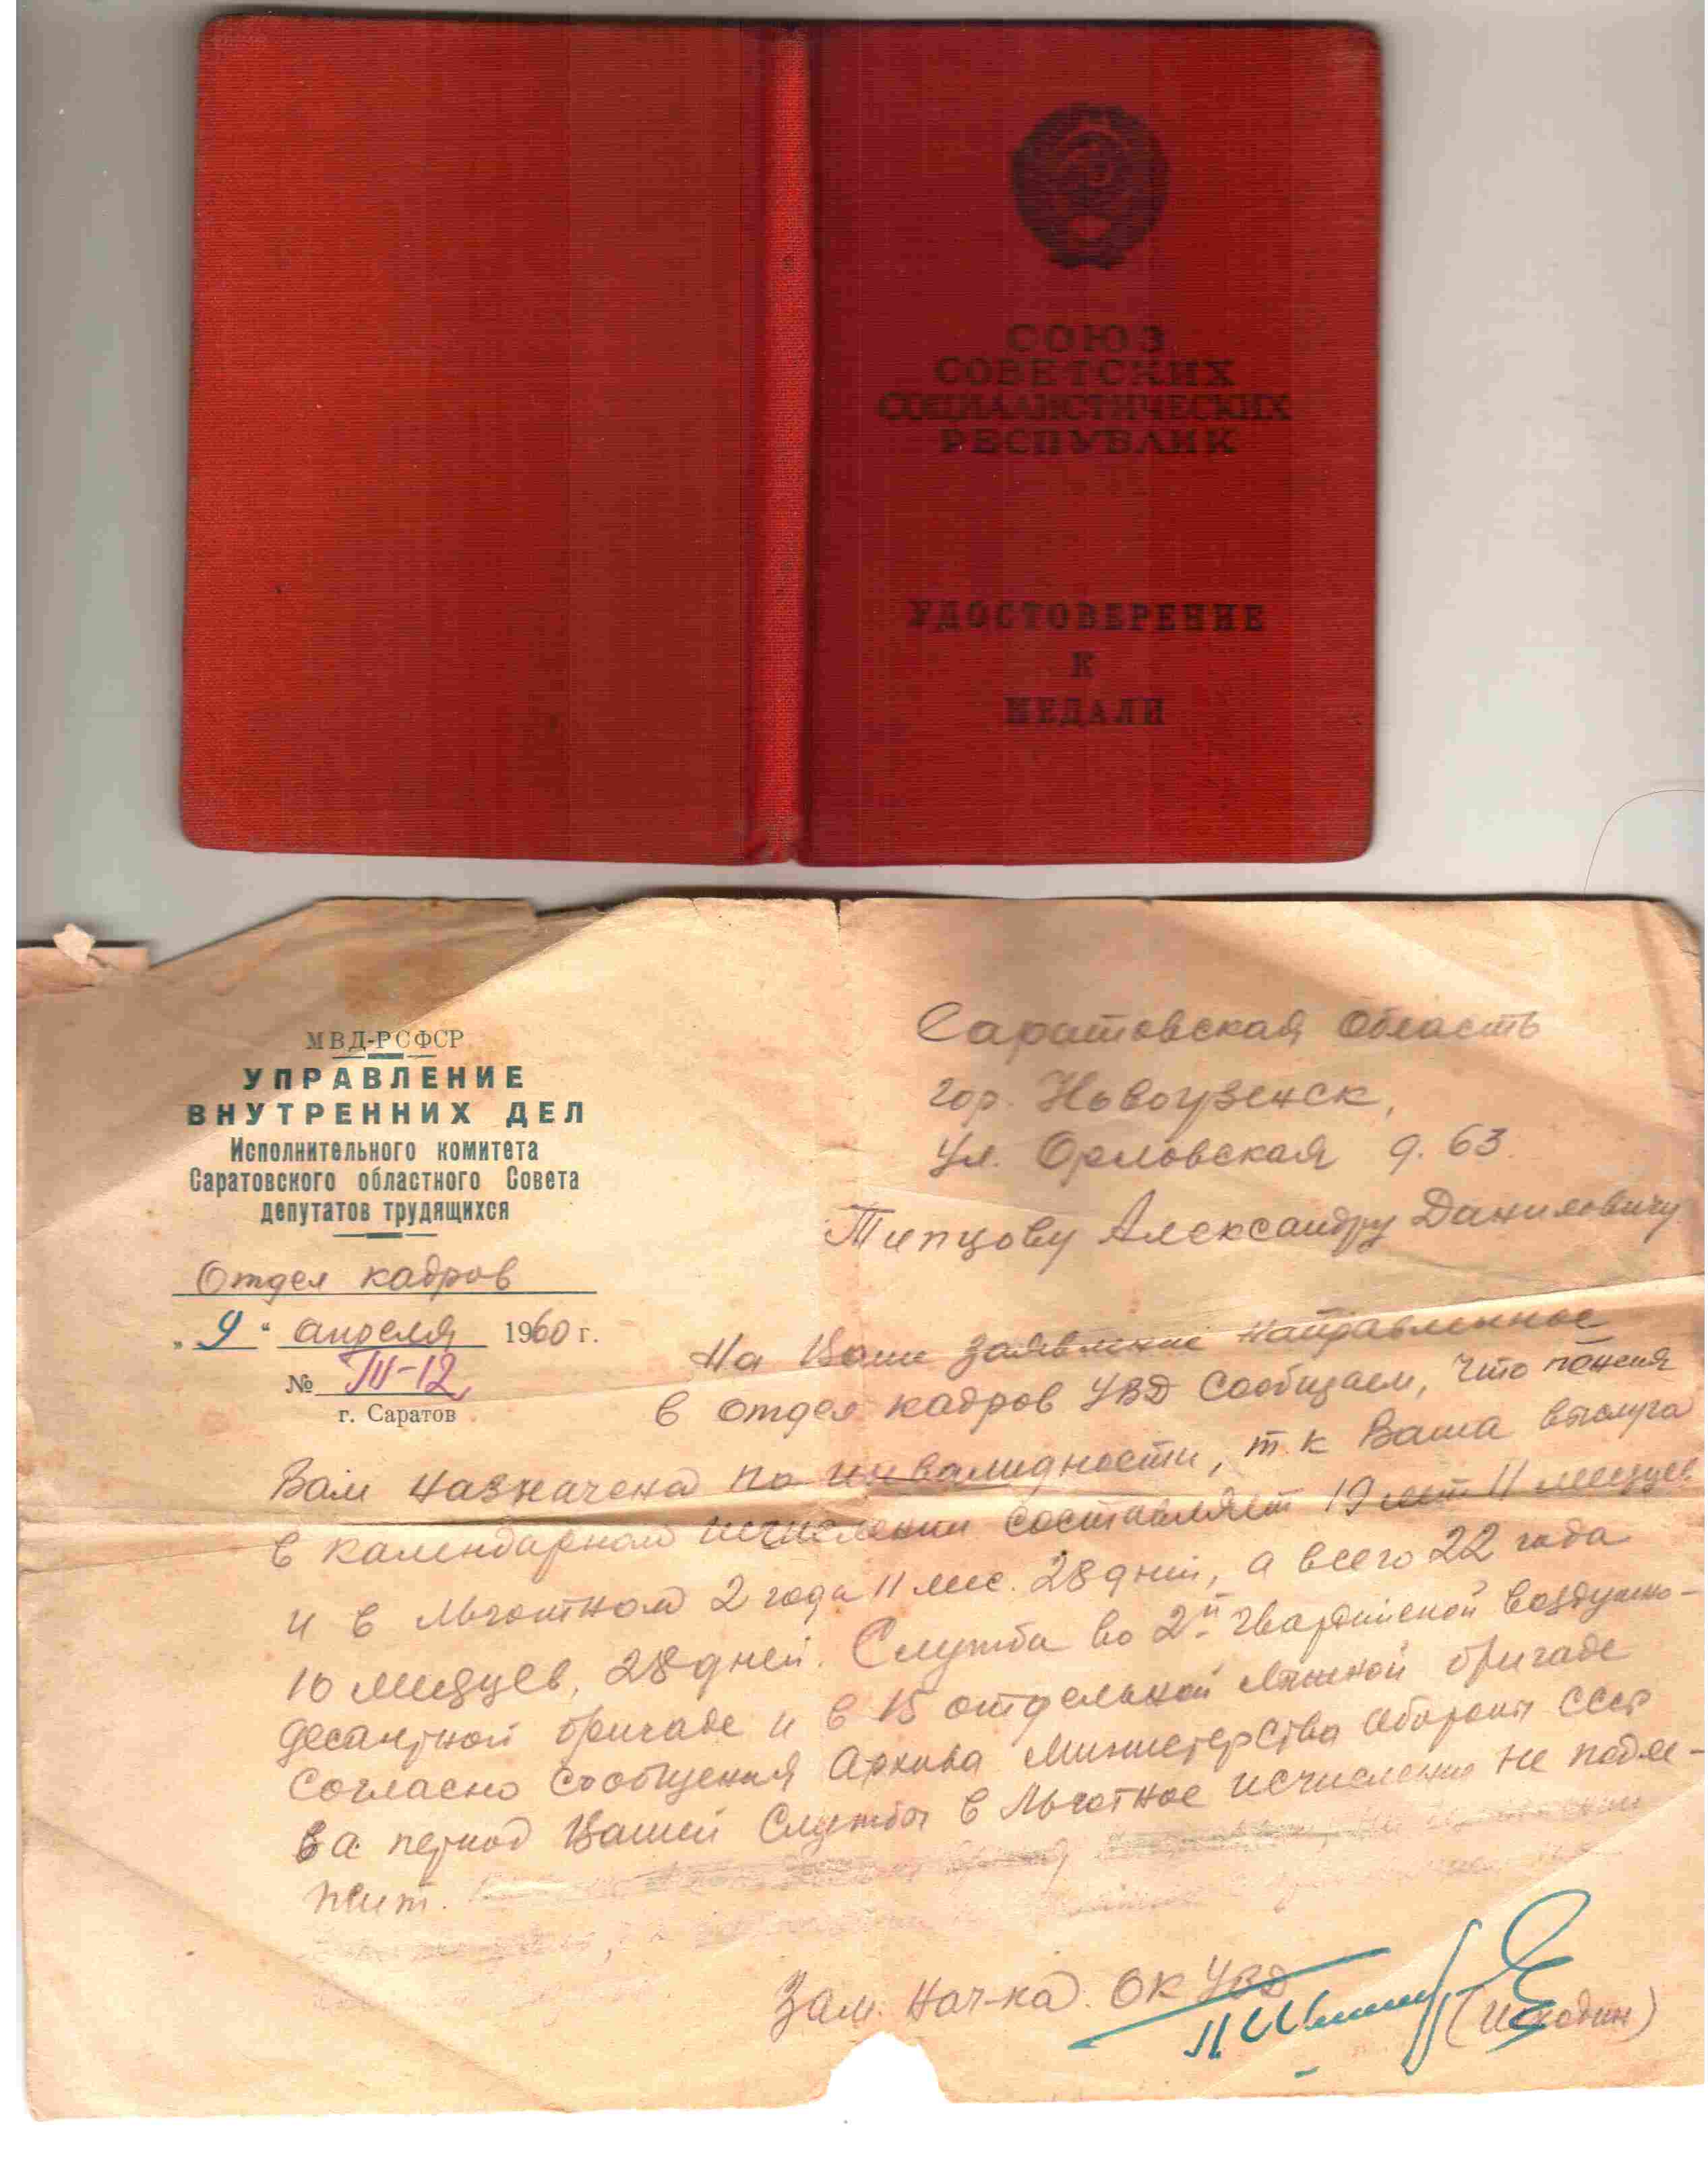 СОЮЗ
СОВЕТСКИХ
СОЦИАЛИСТИЧЕСКИХ
РЕСПУБЛИК
УДОСТОВЕРЕНИЕ
К
МЕДАЛИ
МВД-РСФСР
УПРАВЛЕНИЕ
ВНУТРЕННИХ ДЕЛ
Исполнительного комитета
Саратовского областного Совета
депутатов трудящихся
Отдел кадров
„9“ апреля 1960 г.
№ III-12
г. Саратов
Саратовская область
гор. Новоузенск,
ул. Орловская д. 63.
Типцову Александру Даниловичу
На Ваше заявление направленное
в отдел кадров УВД сообщаем, что пенсия
Вам назначена по инвалидности, т. к Ваша выслуга
в календарном исчислении составляет 19 лет 11 месяцев
и в льготном 2 года 11 мес. 28 дней, а всего 22 года
10 месяцев, 28 дней. Служба во 2й гвардейской воздушно-
десантной бригаде и в 15 отдельной лыжной бригаде
согласно сообщения Архива Министерства Обороны СССР
за период Вашей службы в льготное исчисление не подле-
жит.
Зам. нач-ка ОК УВД